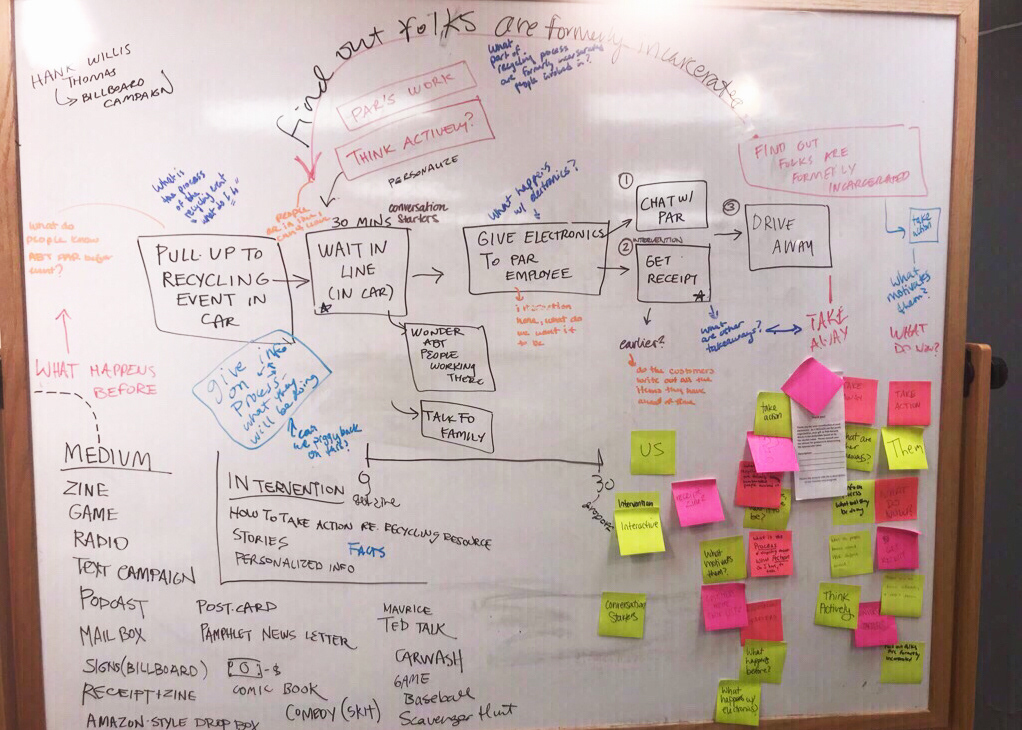 Find out folks are formerly incarcerated
HANK WILLIS
THOMAS
BILLBOARD
CAMPAIGN
PAR'S WORK
THINK ACTIVELY?
PERSONALIZE
What
part of
recycling process
are formerly incarcerated
people involved in?
FIND OUT
FOLKS ARE
FORMERLY
INCARCERATED
take
action
What
motivates
them?
WHAT
DO NOW?
What is
the process
of the
recycling event
what do I do
What do
people know
ABT PAR before
event?
WHAT HAPPENS
BEFORE
PULL-UP TO
RECYCLING
EVENT IN
CAR
people
are in line,
30 MINS
conversation
starters
WAIT IN
LINE
(IN CAR)
WONDER
ABT
PEOPLE
WORKING
THERE
TALK TO
FAMILY
What happens
w/ electronics?
GIVE ELECTRONICS
TO PAR
EMPLOYEE
interaction
here, what do
we want it
to be
1
CHAT W/
PAR
2
INTERVENTION
GET
RECEIPT
3
DRIVE
AWAY
earlier?
do the customers
write out all the
items they have
what are other
takeaways?
TAKE
AWAY
give info
on
process-
what they
will be doing
can
we piggy back
on this?
MEDIUM
ZINE
GAME
RADIO
TEXT CAMPAIGN
PODCAST
MAIL BOX
SIGNS (BILLBOARD)
RECEIPT/ZINE
AMAZON-STYLE DROP BOX
POST CARD
PAMPHLET NEWS LETTER
-$
COMIC BOOK
COMEDY (SKIT)
MAURICE
TED TALK
CARWASH
GAME
Baseball
Scavenger Hunt
INTERVENTION
HOW TO TAKE ACTION RE. RECYCLING RESOURCE
STORIES
FACTS
PERSONALIZED INFO
get zine
30
dropoff
US
Intervention
Interactive
Conversation
Starters
take
action
TAKE
ACTION
Them
WHAT
DO NOW?
What motivates
them?
what is the
Process
Think
Actively
What
happens
before?
What
happens w/
electronics?